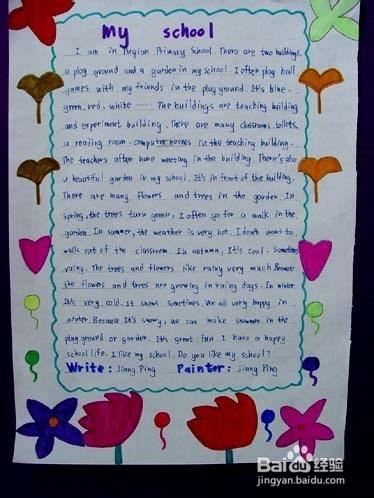 My school
I am in Yuqian Primary School. There are two buildings,
a play ground and a garden in my school. I often play ball
games with my friends in the play ground. It's blue.
green. red. white ...... The buildings are teaching building
and experiment building. There are many classrooms. toilets,
a reading room. computer rooms in the teaching building.
The teachers often have meeting in the building. There's also
a beautiful garden in my school. It's in front of the building.
There are many flowers and trees in the garden. In
spring, the trees turn green, I often go for a walk in the
garden. In summer, the weather is very hot. I don't want to
walk out of the classroom. In autumn, It's cool. Sometimes
rainy. The trees and flowers like rainy very much. Because
the flowers and trees are growing in rainy days. In winter.
It's very cold. It snows sometimes. We all very happy in
winter. Because It's snowy, we can make snowmen in the
play ground or garden. It's great fun. I have a happy
school life. I like my school. Do you like my school?
Write: Jiang Ping Painter: Jiang Ping
Baidu 经验
jingyan.baidu.com